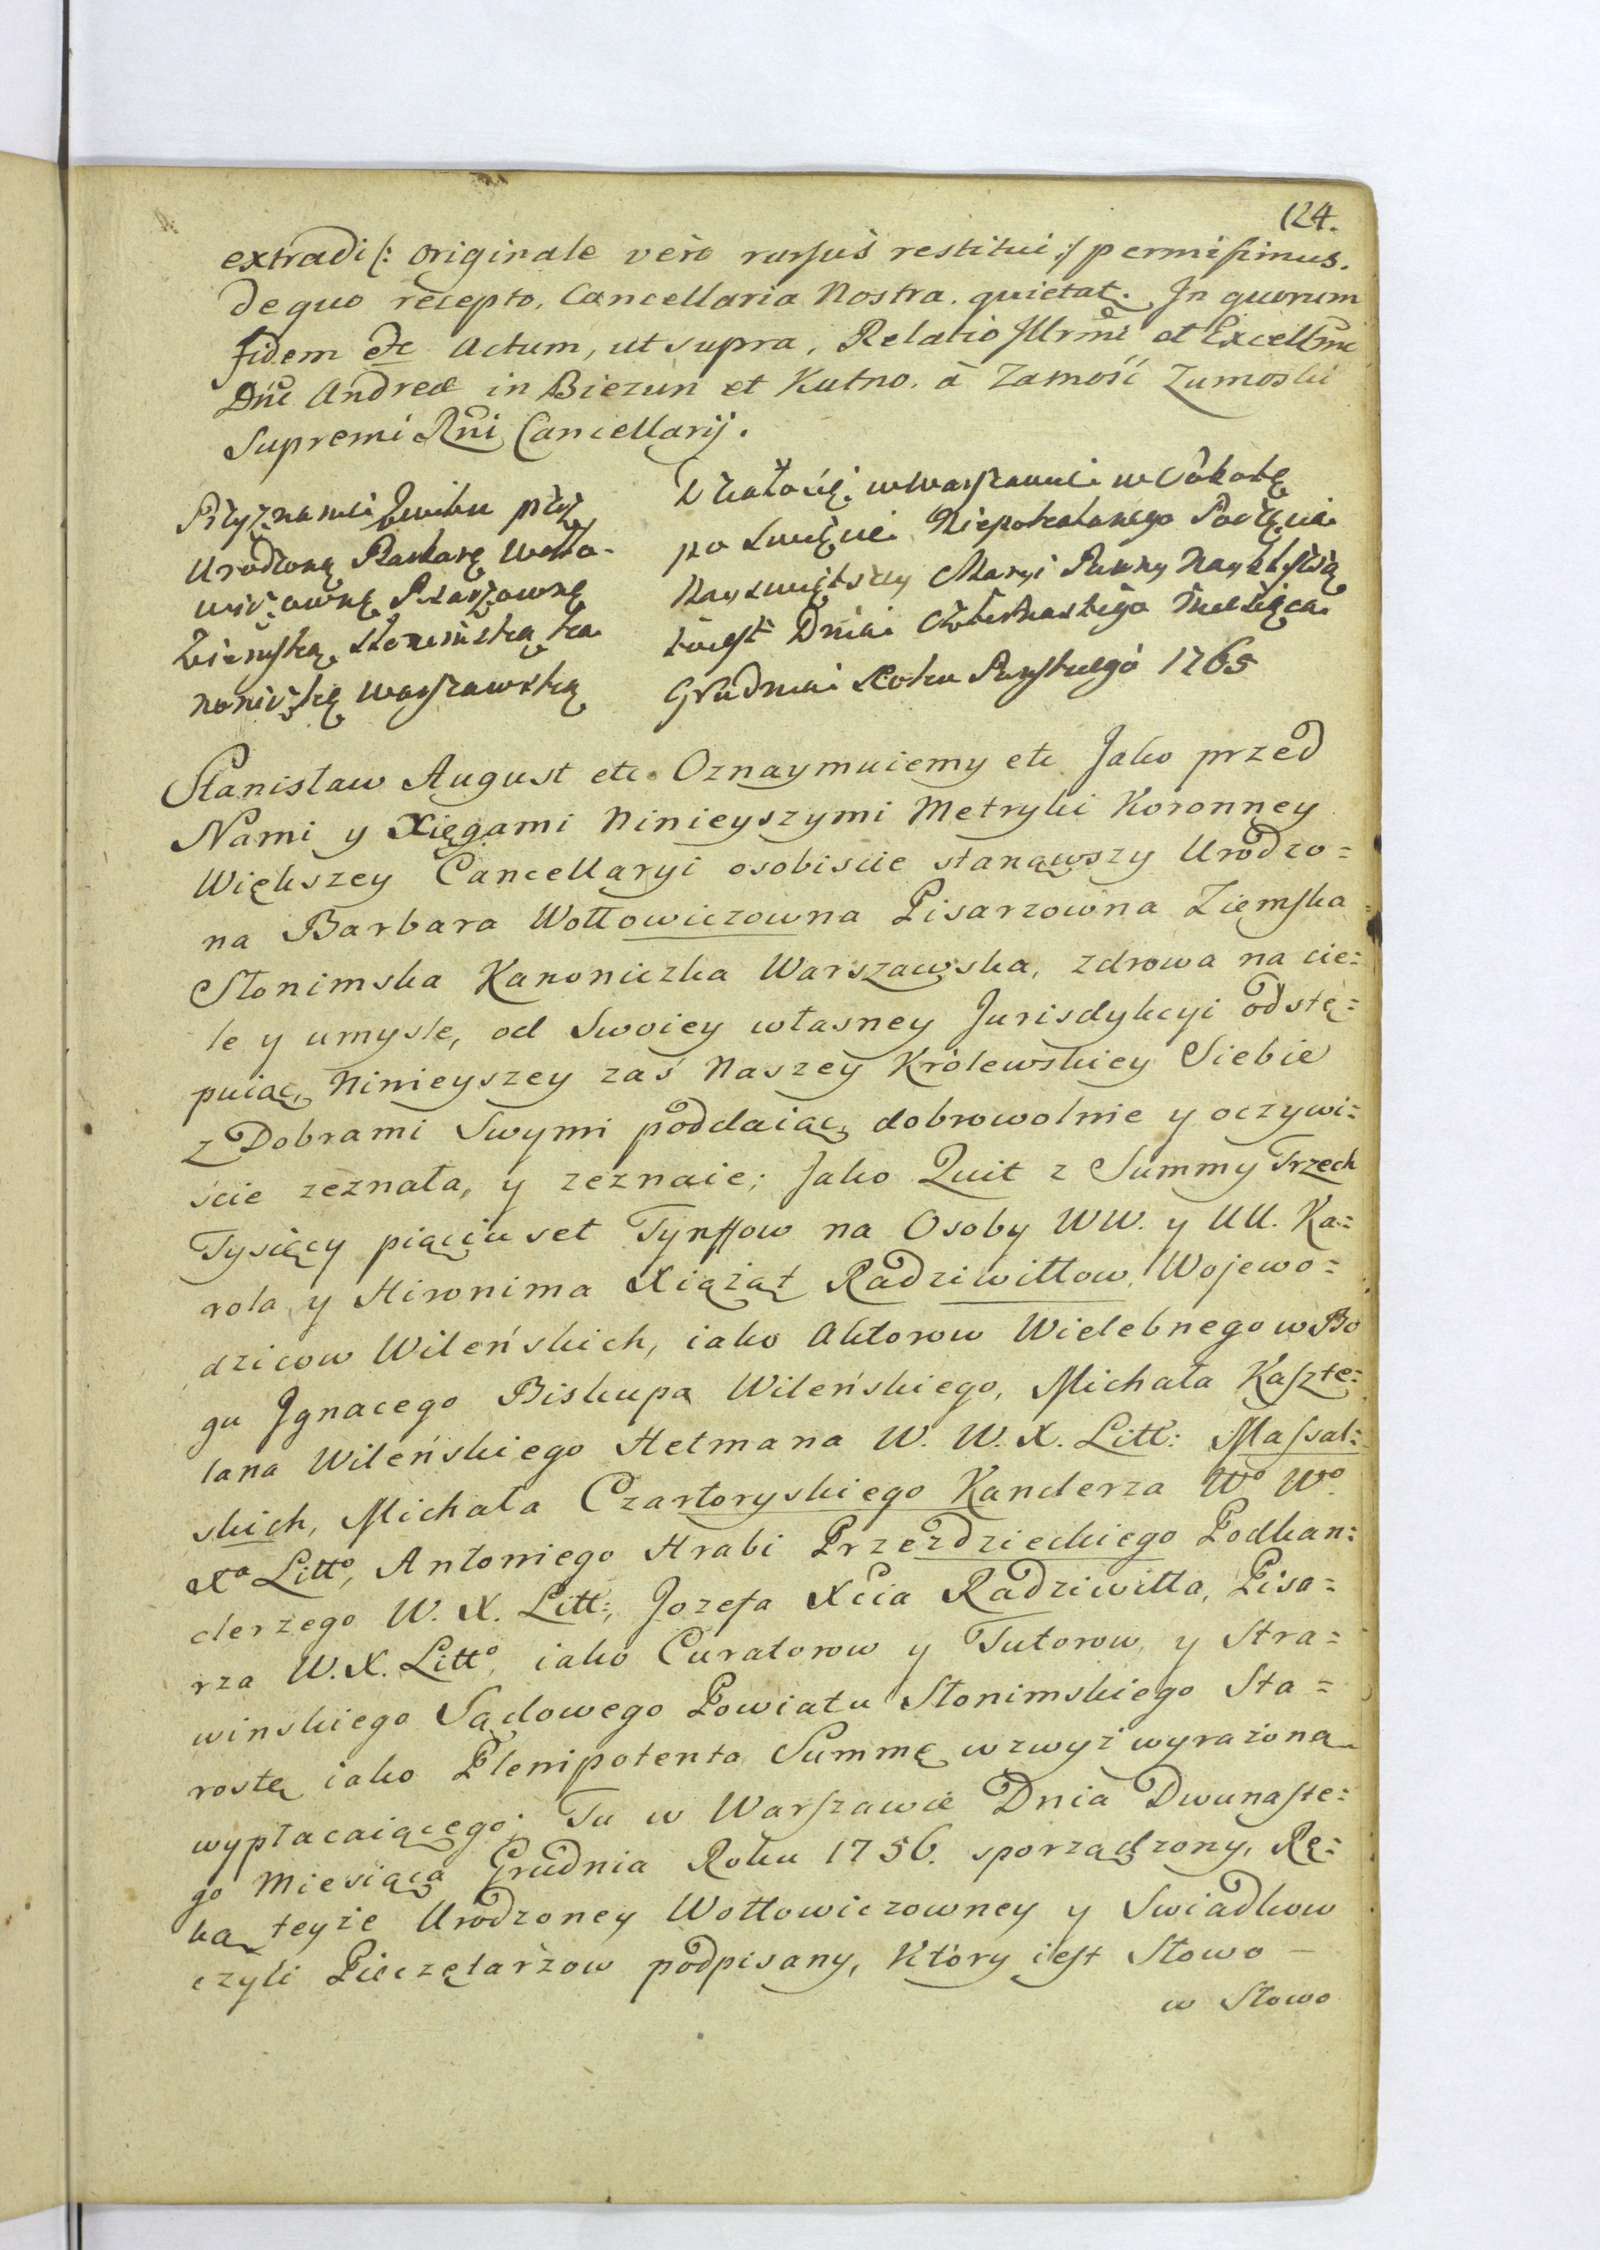 124.
extradi /: originale vero rursus restitui :/ permisimus.
de quo recepto, Cancellaria Nostra quietat. In quorum
fidem etc Actum, ut supra, Relatio Illrmi et Excellmi
Dni Andreæ in Biezun et Kutno, à Zamość Zamoski
Supremi Rni Cancellarij.
Przyznanie Kwitu przez
Urodzoną Barbarę Wołło-
wiczownę Pisarzownę
Ziemską Słonimską Ka
noniczkę Warszawską
Działo się w Warszawie w Sobotę
po Święcie Niepokalanego Poczęcia
Nayświętszey Maryi Panny Naybliższą
to iest Dnia Czternastego Miesiąca
Grudnia Roku Pańskiego 1765
Stanisław August etc. Oznaymuiemy etc Jako przed
Nami y Xięgami Ninieyszymi Metryki Koronney
Większey Cancellaryi osobiscie stanąwszy Urodzo=
na Barbara Wołłowiczowna Pisarzowna Ziemska
Słonimska Kanoniczka Warszawska, zdrowa na cie=
le y umysle, od Swoiey własney Jurisdykcyi odstę=
puiąc, Ninieyszey zaś Naszey Królewskiey Siebie
z Dobrami Swymi poddaiąc, dobrowolnie y oczywi=
ście zeznała, y zeznaie; Jako Quit z Summy Trzech
Tysięcy pięciu set Tynffow na Osoby WW. y UU. Ka=
rola y Hironima Xiążąt Radziwiłłow, Wojewo=
dzicow Wileńskich, iako Aktorow Wielebnego w Bo
gu Jgnacego Biskupa Wileńskiego, Michała Kaszte=
lana Wileńskiego Hetmana W. W. X. Litt: Massal=
skich, Michała Czartoryskiego Kanclerza Wo Wo
Xa Litto, Antoniego Hrabi Przezdzieckiego Podkan=
clerzego W. X. Litt:, Jozefa Xcia Radziwiłła, Pisa=
rza W. X. Litto, iako Curatorow y Tutorow, y Stra=
winskiego Sądowego Powiatu Słonimskiego Sta=
rostę iako Plenipotenta Summę wzwyż wyrażoną
wypłacaiącego; Tu w Warszawie Dnia Dwunaste=
go Miesiąca Grudnia Roku 1756. sporządzony, Rę=
ką teyże Urodzoney Wołłowiczowney y Swiadkow
czyli Pieczętarzow podpisany, Który iest Słowo –
w Słowo